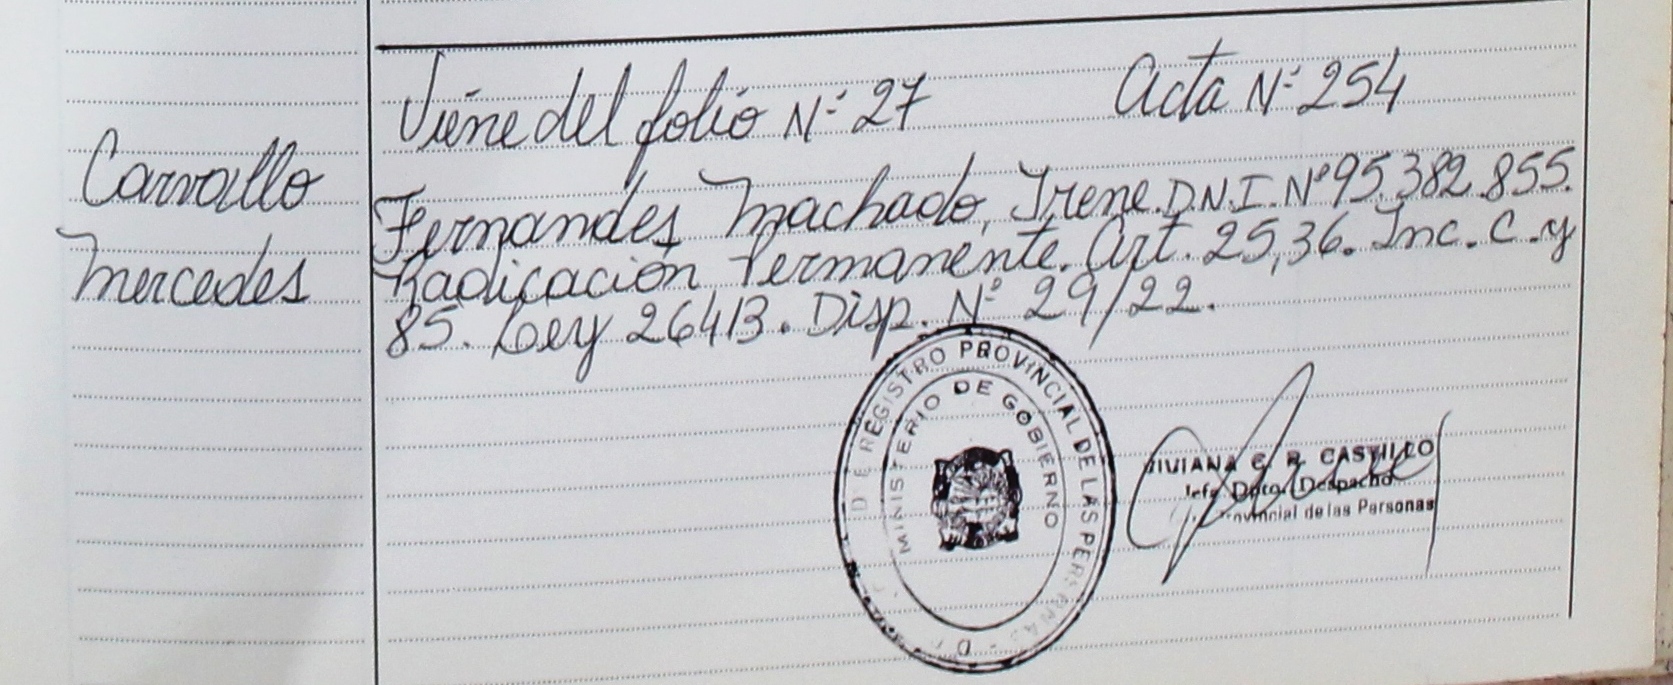 Viene del folio Nº 27 Acta Nº 254
Carvallo
Mercedes
Fernandes Machado, Irene. D.N.I. Nº 95.382.855.
Radicación Permanente. Art. 25,36. Inc. C. y
85. Ley 26413. Disp. Nº 29/22.
REGISTRO PROVINCIAL DE LAS PERSONAS
MINISTERIO DE GOBIERNO
VIVIANA C. R. CASTILLO
Jefe Dpto. Despacho
Provincial de las Personas